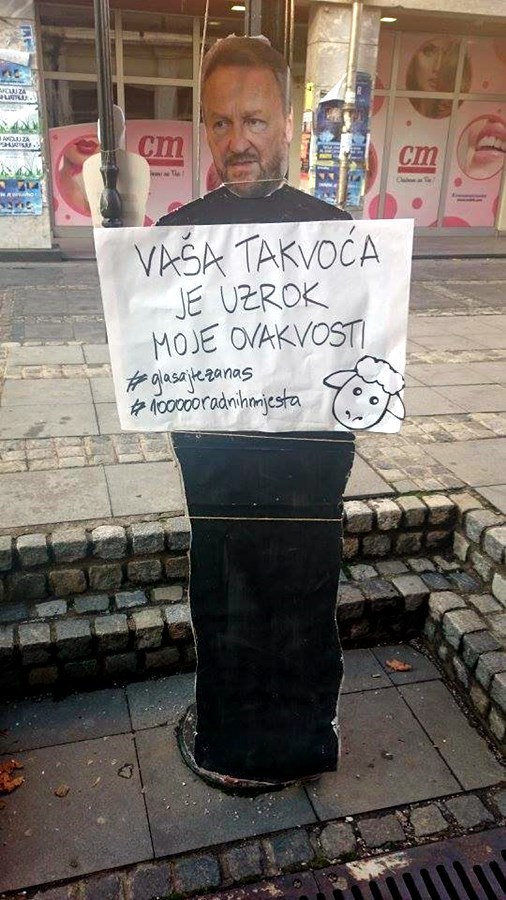 VAŠA TAKVOĆA
JE UZROK
MOJE OVAKVOSTI
#glasajtezanas
#100000radnihmjesta
cm
cm